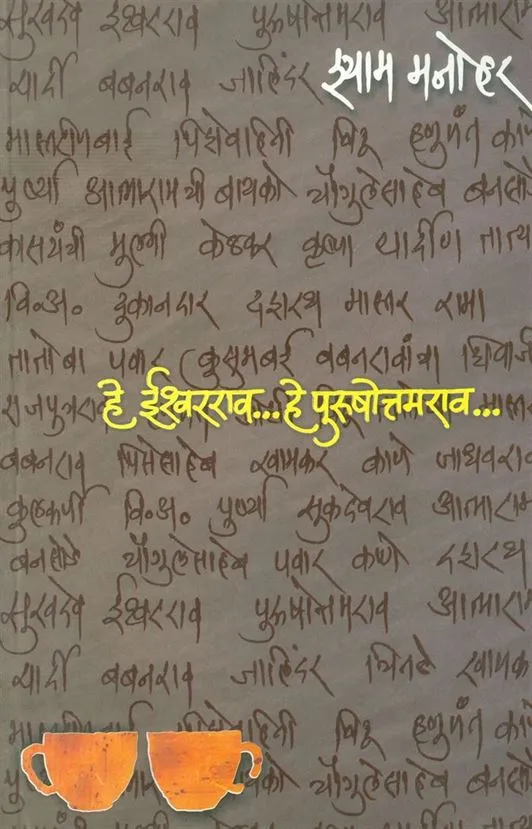 सुखदेव ईश्वरराव पुरूषोत्तमराव आत्माराम
श्याम मनोहर
यार्दी बबनराव जालिंदर
मास्तरीणबाई पिशेवहिनी हणुमंत
पुष्पी आत्मारामची बायको चौगुलेसाहेब बनसोडे
मुलगी केळकर कृष्णा यार्दीण तात्या
वि.अ. दुकानदार दशरथ मास्तर रामा
तातोबा पवार कुसुमबाई बबनरावांचा शिवाजी
हे ईश्वरराव...हे पुरूषोत्तमराव...
मास्तर
बबनराव पिसेसाहेब खामकर काणे जाधवराव
कुलकर्णी वि.अ. पुष्पी सुकदेवराव आत्माराम
बनसोडे चौगुलेसाहेब पवार काणे दशरथ
सुखदेव ईश्वरराव पुरूषोत्तमराव आत्माराम
यार्दी बबनराव जालिंदर खामकर
हणुमंत
बायको चौगुलेसाहेब बनसोडे